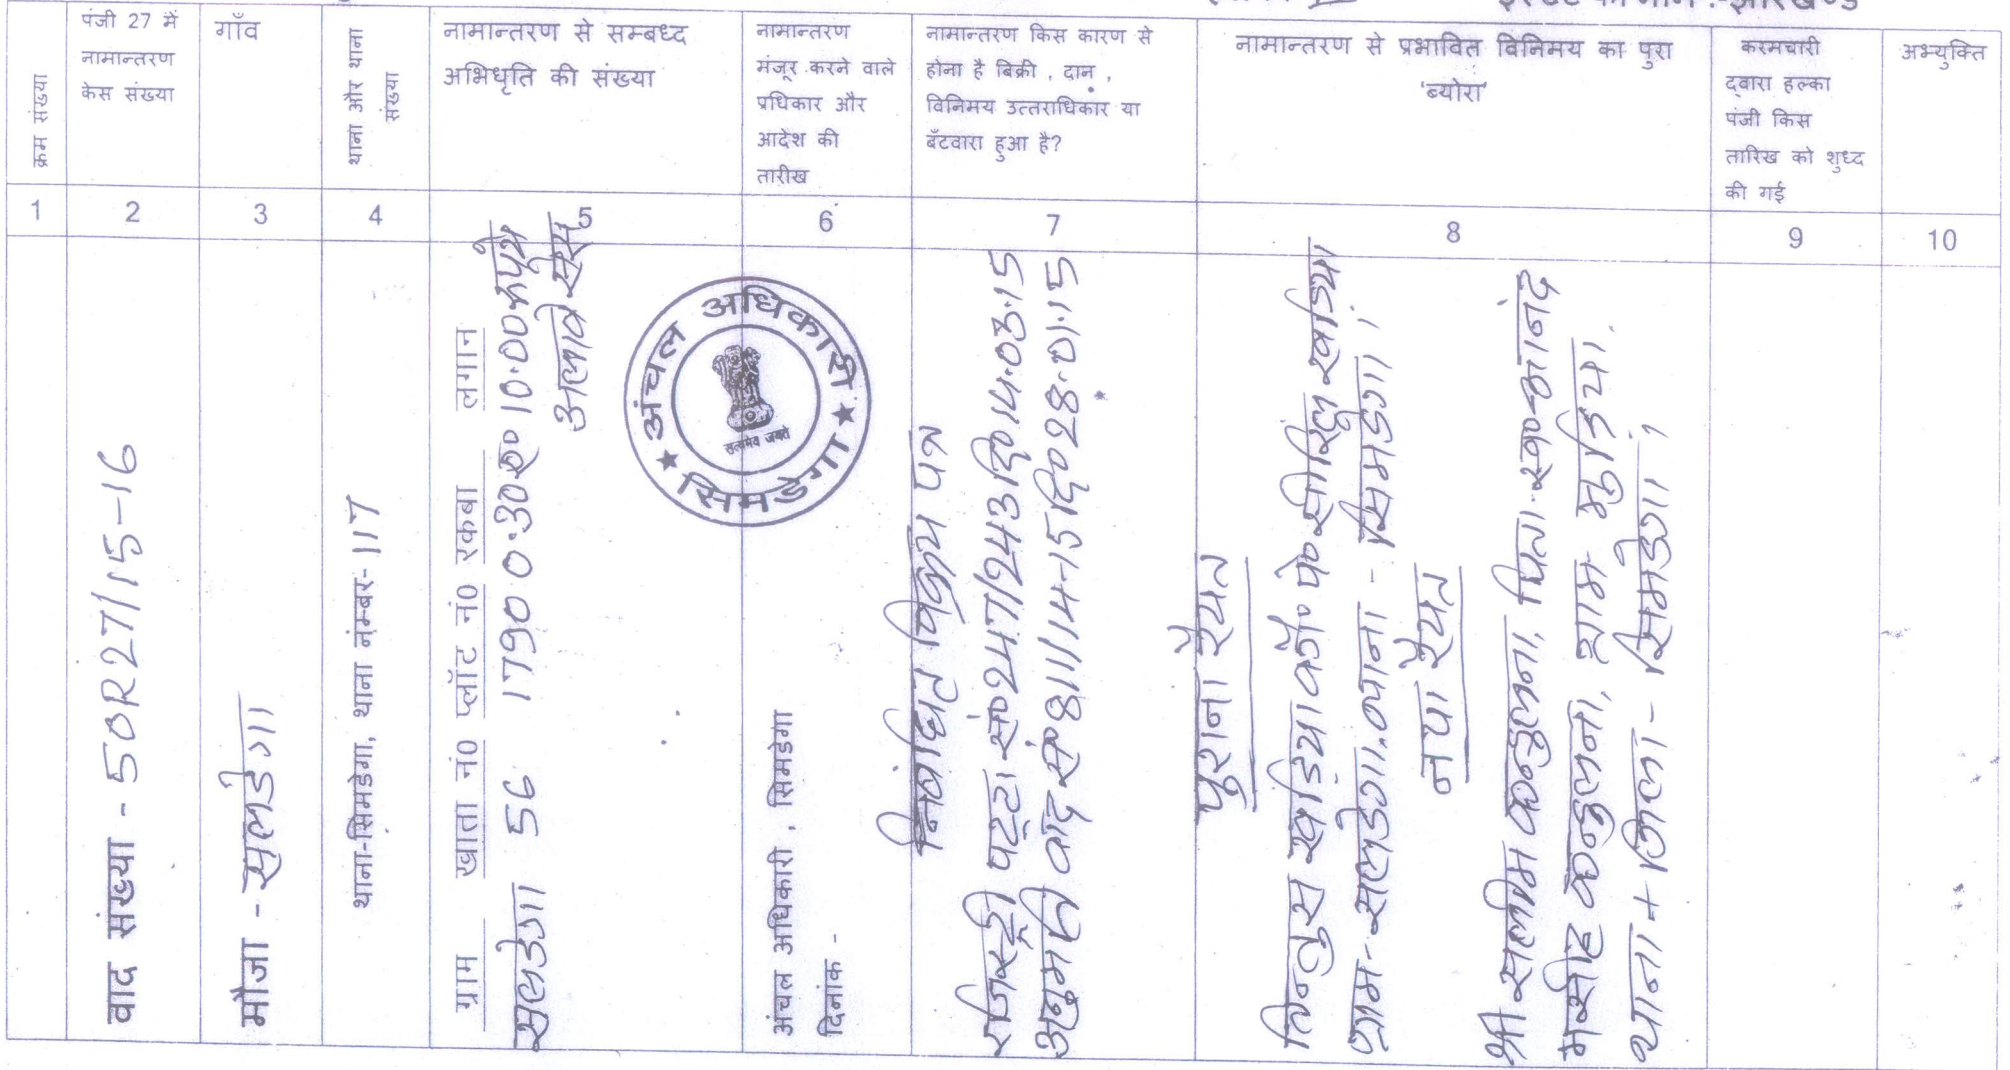 इस्टेट का नाम :-झारखण्ड
क्रम संख्या
पंजी 27 में
नामान्तरण
केस संख्या
गाँव
थाना और थाना
संख्या
नामान्तरण से सम्बध्द
अभिधृति की संख्या
नामान्तरण
मंजूर करने वाले
प्रधिकार और
आदेश की
तारीख
नामान्तरण किस कारण से
होना है बिक्री , दान ,
विनिमय उत्तराधिकार या
बँटवारा हुआ है?
नामान्तरण से प्रभावित विनिमय का पुरा
'ब्योरा'
करमचारी
द्वारा हल्का
पंजी किस
तारिख को शुध्द
की गई
अभ्युक्ति
1
2
3
4
5
6
7
8
9
10
वाद संख्या - 50R27/15-16
मौजा - सलडेगा
थाना-सिमडेगा, थाना नंम्बर- 117
ग्राम खाता नं0 प्लॉट नं0 रकबा लगान
सलडेगा 56 1790 0.30 ए० 10.00 रूपये
अलावे सेस
अंचल अधिकारी
सत्यमेव जयते
सिमडेगा
अंचल अधिकारी , सिमडेगा
दिनांक -
निबंधित विक्रय पत्र
रजिस्ट्री पट्टा सं० 247/243 दि० 14.03.15
अनुमति वाद सं० 811/14-15 दि० 28.01.15
पुराना रैयत
खड़िया वगै० पे० खड़िया
ग्राम - सलडेगा, थाना - सिमडेगा।
नया रैयत
श्री सलीम कन्डुलना, पिता स्व० आनंद
मसीह कन्डुलना, ग्राम
थाना + जिला - सिमडेगा।